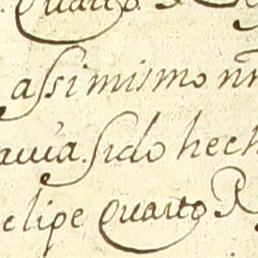 quarto
assimismo nr̃
auia sido hech
elipe quarto R